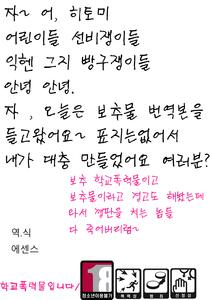 자~ 어, 히토미
어린이들 선비쟁이들
익헨 그지 방구쟁이들
안녕 안녕.
자, 오늘은 보추물 번역본을
들고왔어요~ 표지는없어서
내가 대충 만들었어요 여러분?
보추 학교폭력물이고
보추물이라고 경고도 해놨는데
와서 깽판을 치는 놈들
다 죽어버리렴~
역.식
에센스
학교폭력물입니다/
18
청소년이용불가
폭력성
범죄
선정성